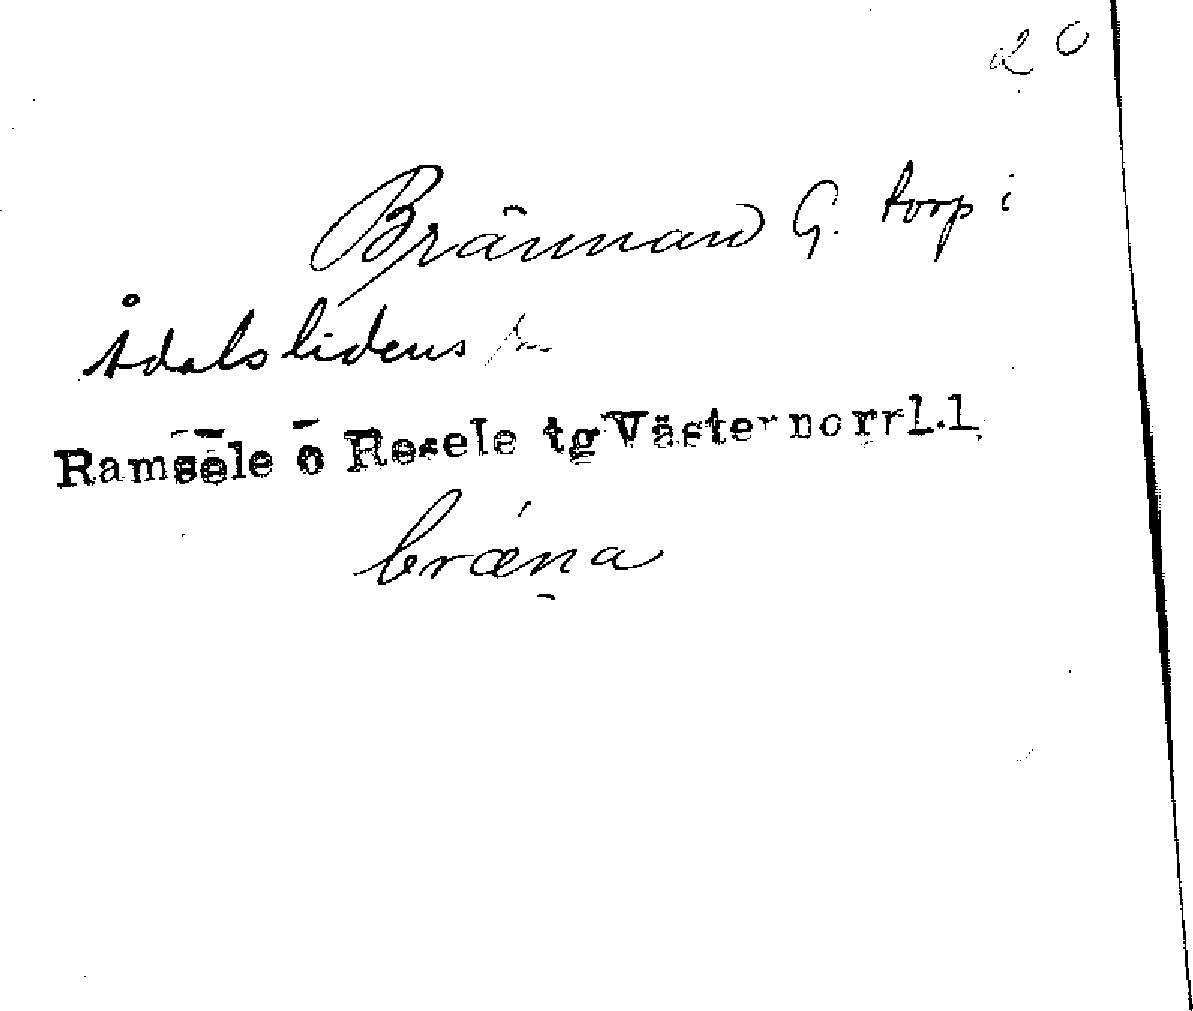 20
Brännan G. torp i
Ådalslidens sn
Ramsele o Resele tg Västernorrl.l.
bræ̀na